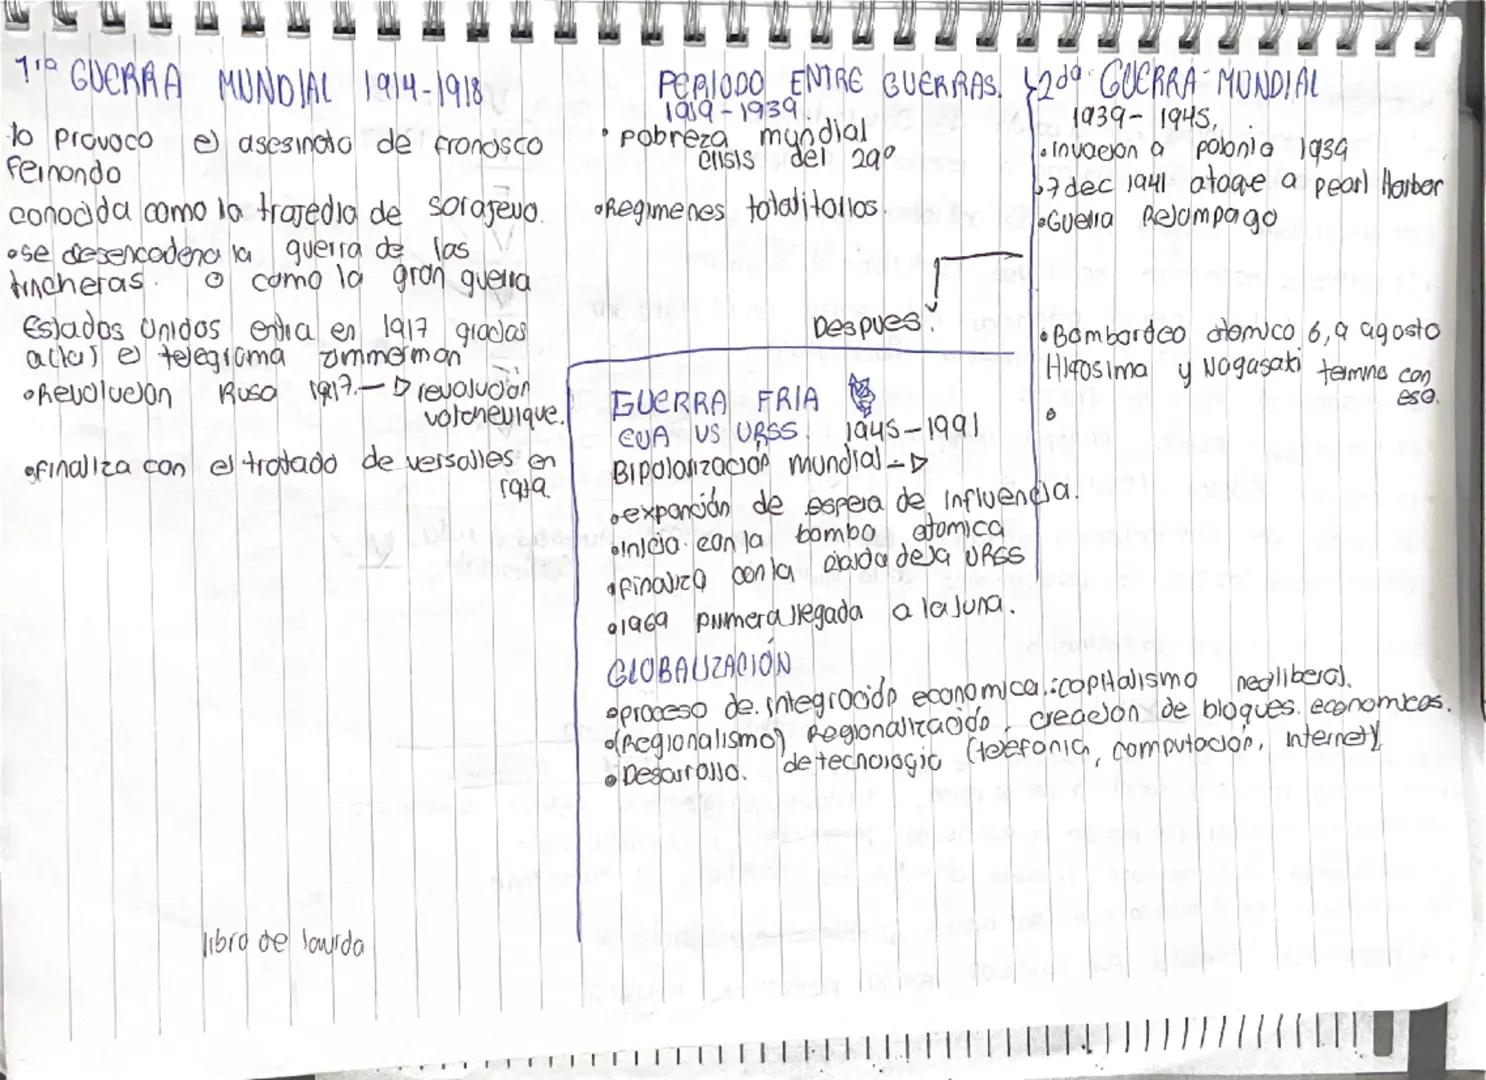 1ra GUERRA MUNDIAL 1914-1918
lo provoco el asesinato de francisco
Fernando
conocida como la trajedia de sarajevo.
•se desencadena la guerra de las
trincheras. o como la gran guerra
Estados Unidos entra en 1917 gracias
al telegrama zimmerman
•Revolucion Rusa 1917.—▷ revalucion
volchevique.
•finaliza con el tratado de versalles en
PERIODO ENTRE GUERRAS.
1919-1939.
•pobreza mundial
crisis del 29º
•Regimenes totalitarios.
2da GUERRA MUNDIAL
1939-1945.
•invacion a polonia 1939
•7 dec 1941 ataque a pearl Harbor
•Guerra Relampago
Despues:
•Bombardeo atomico 6,9 agosto
Hirosima y Nagasaki termina con
eso.
GUERRA FRIA
EUA VS URSS. 1945-1991
Bipolarización mundial -▷
•expanción de espera de influencia.
•inicia con la bomba atomica
•finaliza con la caida de la URSS
•1969 primera llegada a la luna.
GLOBALIZACIÓN
•proceso de integración economica.:capitalismo neoliberal.
•(Regionalismo) Regionalización, creacion de bloques economicos.
•Desarrollo. de tecnologia (telefonia, computación, internet)
libro de